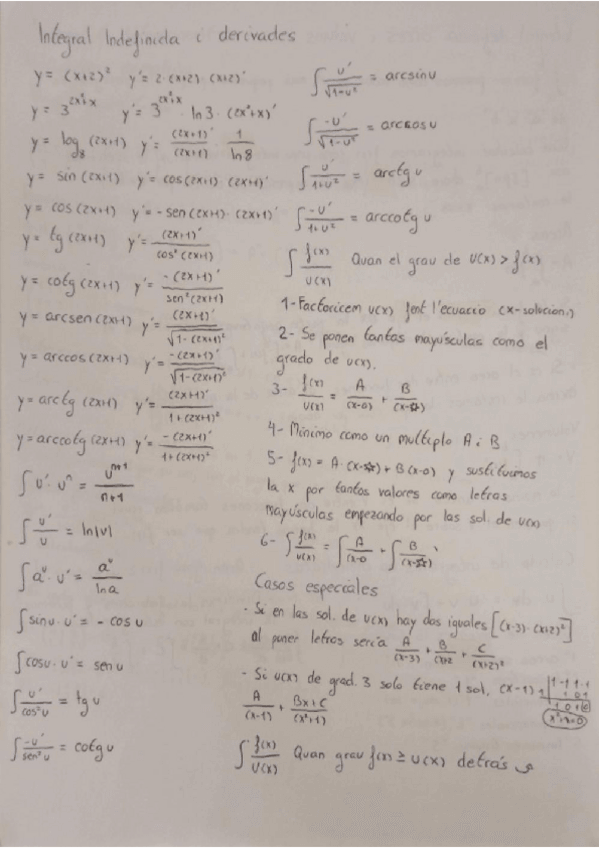 Integral Indefinida i derivades
y = (x+2)² y' = 2·(x+2)·(x+2)'
y = 3^(2x²+x) y' = 3^(2x²+x) · ln3 · (2x²+x)'
y = log₈ (2x+1) y' = (2x+1)'/(2x+1) · 1/ln8
y = sin (2x+1) y' = cos(2x+1)·(2x+1)'
y = cos (2x+1) y' = -sen(2x+1)·(2x+1)'
y = tg (2x+1) y' = (2x+1)'/cos²(2x+1)
y = cotg (2x+1) y' = -(2x+1)'/sen²(2x+1)
y = arcsen (2x+1) y' = (2x+1)'/√(1-(2x+1)²)
y = arccos (2x+1) y' = -(2x+1)'/√(1-(2x+1)²)
y = arctg (2x+1) y' = (2x+1)'/1+(2x+1)²
y = arccotg (2x+1) y' = -(2x+1)'/1+(2x+1)²
∫ u'·uⁿ = uⁿ⁺¹/n+1
∫ u'/u = ln|u|
∫ aᵘ·u' = aᵘ/lna
∫ sinu·u' = - cosu
∫ cosu·u' = senu
∫ u'/cos²u = tgu
∫ -u'/sen²u = cotgu
∫ u'/√(1-u²) = arcsinu
∫ -u'/√(1-u²) = arccosu
∫ u'/1+u² = arctgu
∫ -u'/1+u² = arccotgu
∫ f(x)/u(x) Quan el grau de u(x) > f(x)
1- Factoricem u(x) fent l'ecuacio (x-solucion)
2- Se ponen tantas mayúsculas como el
grado de u(x).
3- f(x)/u(x) = A/(x-0) + B/
4- Mínimo como un multiplo A i B
5- f(x) = A· + B(x-0) y sustituimos
la x por tantos valores como letras
mayúsculas empezando por las sol. de u(x)
6- ∫ f(x)/u(x) = ∫ A/(x-0 + ∫ B/
Casos especiales
- Si en las sol. de u(x) hay dos iguales [(x-3)·(x+2)²]
al poner letras sería A/(x-3) + B/(x+2 + C/(x+2)²
- Si u(x) de grad. 3 solo tiene 1 sol. (x-1)
A/(x-1) + Bx+C/(x²+1)
∫ f(x)/u(x) Quan grau f(x) ≥ u(x) detrás